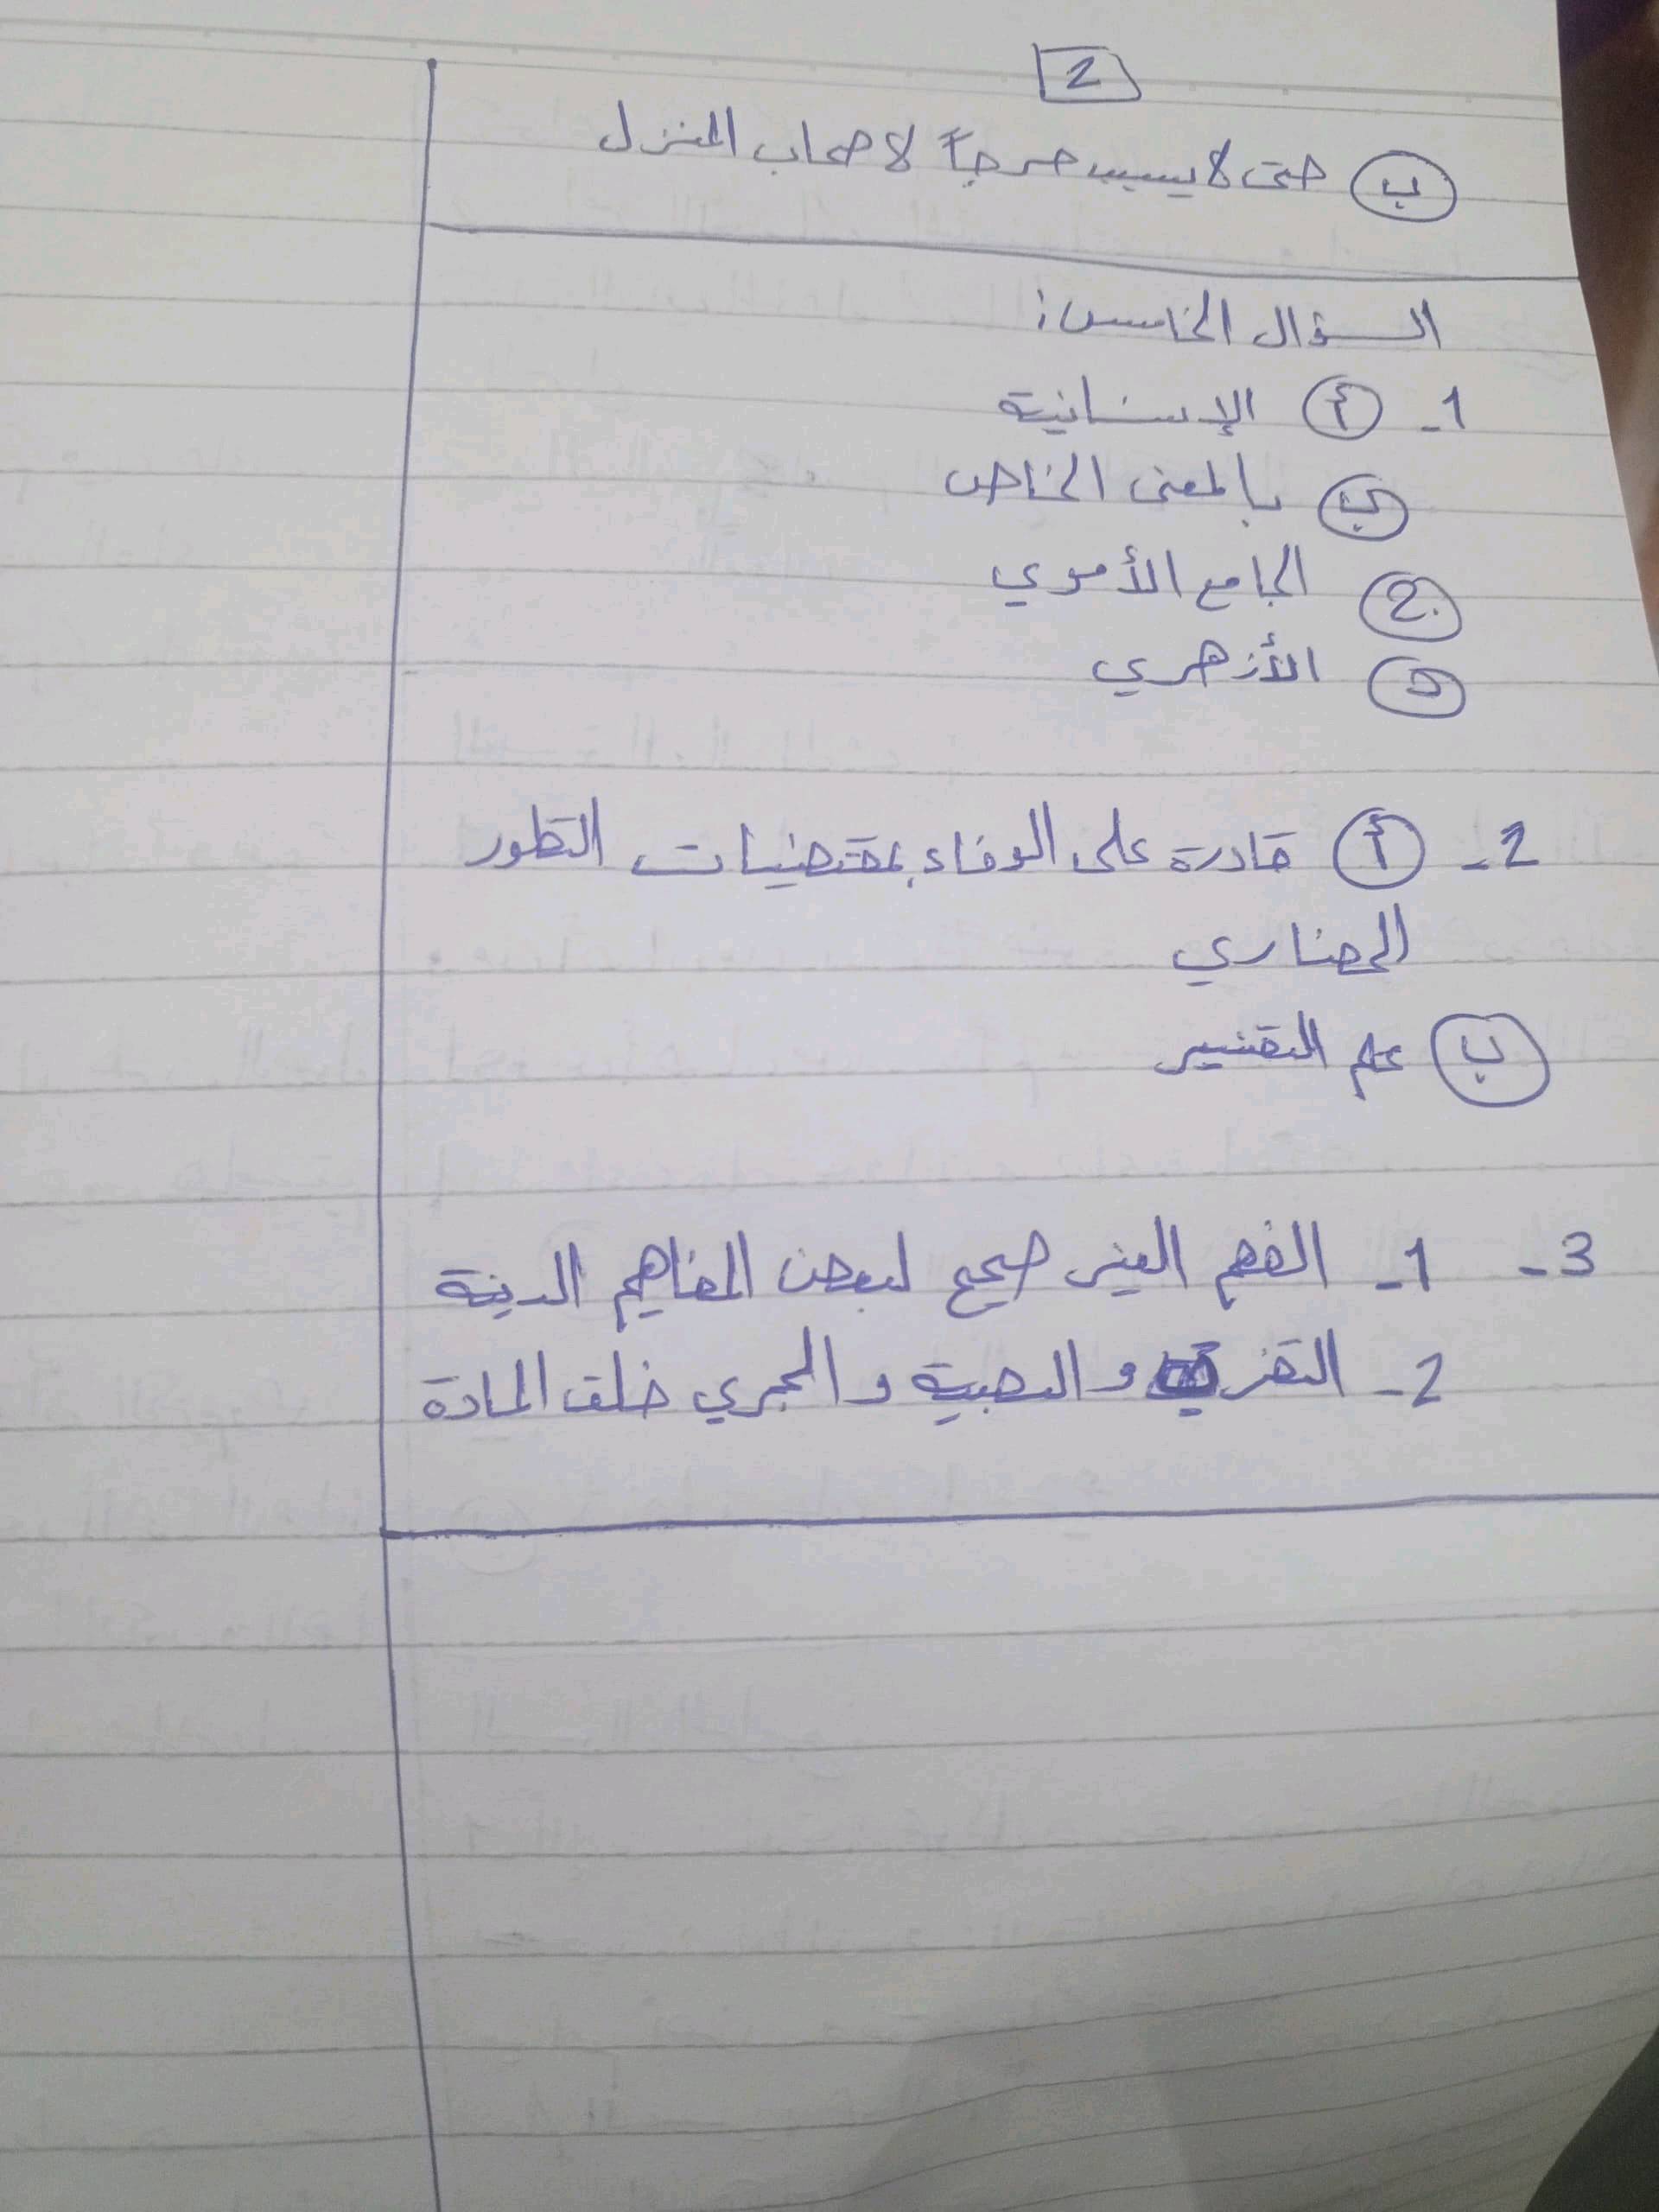 2
ب حتى لا يسبب حرجاً لاصحاب المنزل
السؤال الخامس:
1- أ الإنسانية
ب بالمعنى الخاص
ج الجامع الأموي
د الأزهري
2- أ قادرة على الوفاء بمقتضيات التطور
الحضاري
ب علم التفسير
3- 1- الفهم الغير صحيح لبعض المفاهيم الدينية
2- و والجري خلف المادة